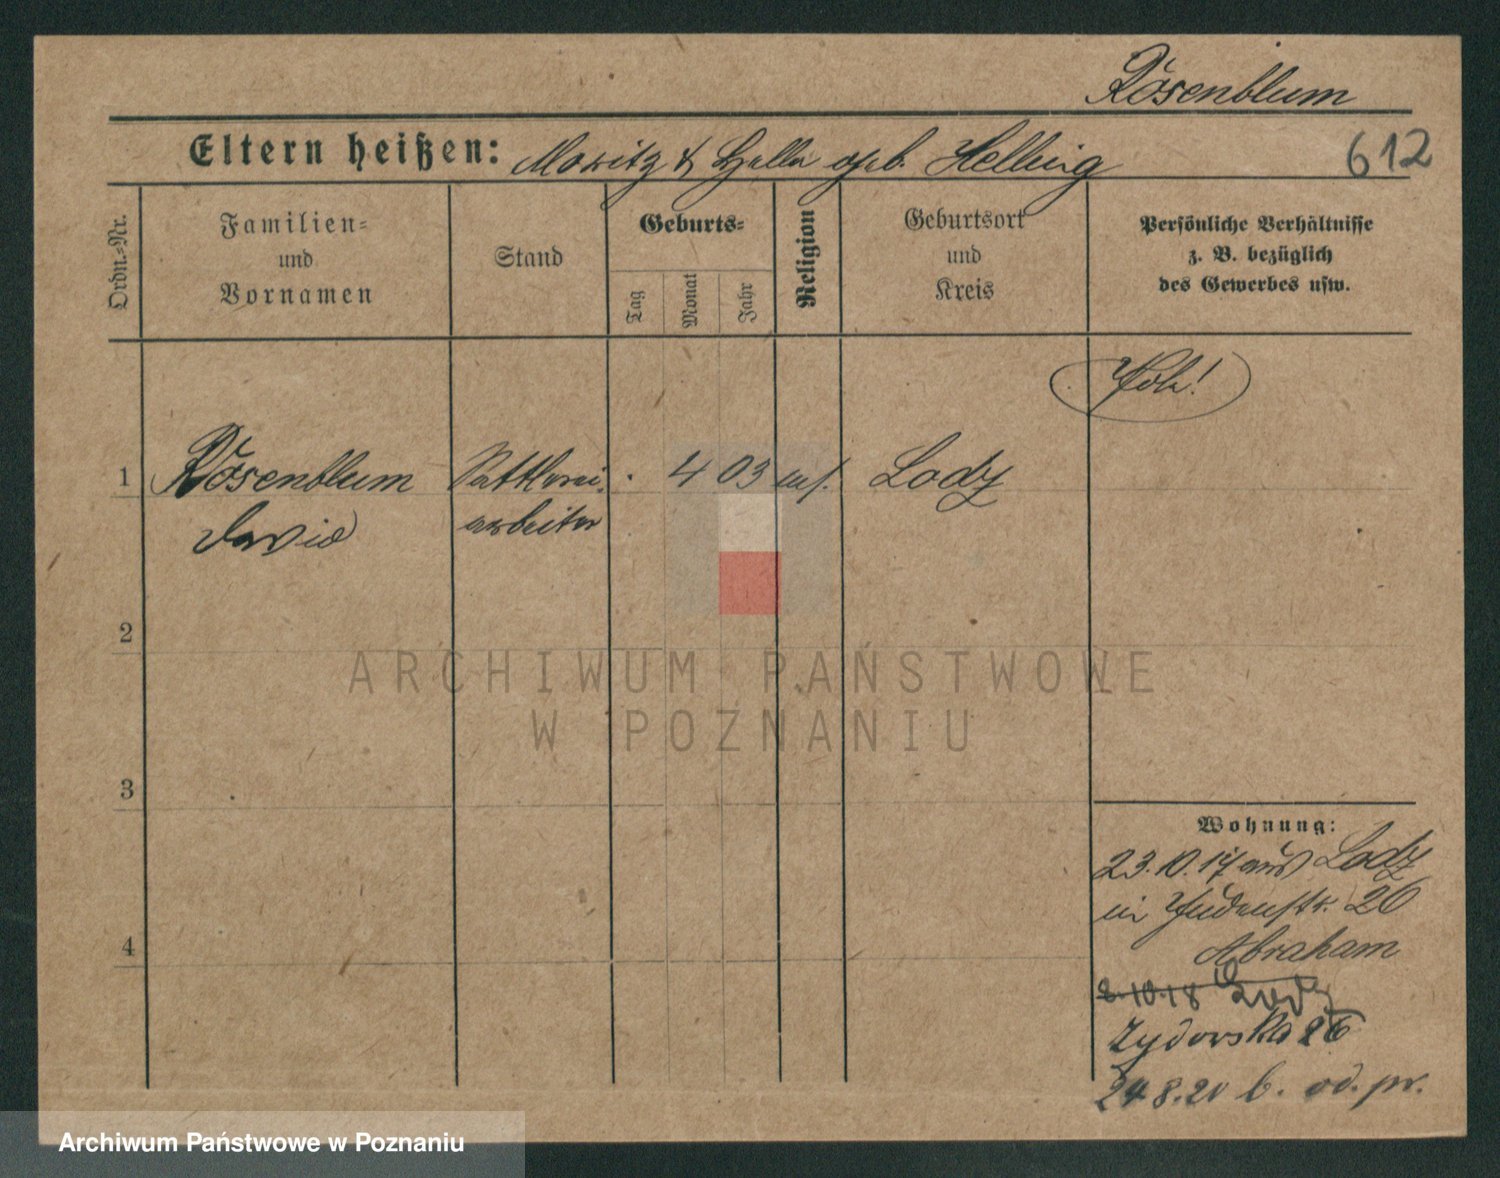 Rosenblum
Eltern heißen: Moritz & Hella geb. Helling
612
Ordn.-Nr.
Familien- und Vornamen
Stand
Geburts-
Tag Monat Jahr
Religion
Geburtsort und Kreis
Persönliche Verhältnisse
z. B. bezüglich
des Gewerbes usw.
1 Rosenblum Sattlerei- 4 03 Lodz
David arbeiter
2
3
4
Wohnung:
23.10.17 aus Lodz
in Judenstr. 26
Abraham
8.10.18 Lodz
Żydowska 26
24 8.20 b. od. pr.
ARCHIWUM PAŃSTWOWE
W POZNANIU
Archiwum Państwowe w Poznaniu